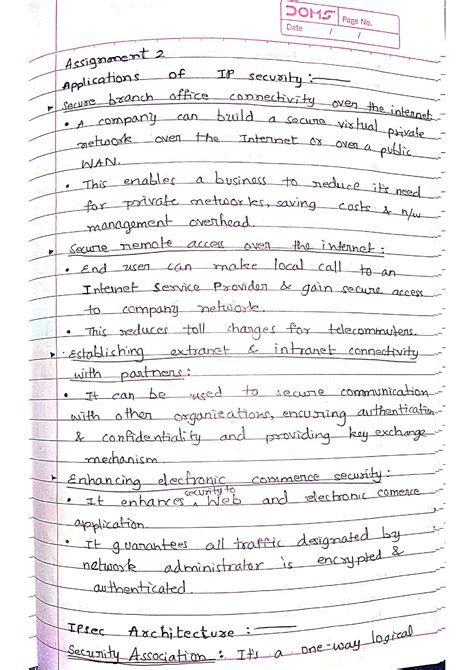 DOMS
Page No.
Date / /
Assignment 2
Applications of IP security :-
Secure branch office connectivity over the internet
• A company can build a secure virtual private
network over the Internet or over a public
WAN.
• This enables a business to reduce it's need
for private networks, saving costs & n/w
management overhead.
Secure remote access over the internet :
• End user can make local call to an
Internet Service Provider & gain secure access
to company network.
• This reduces toll charges for telecommuters.
Establishing extranet & intranet connectivity
with partners :
• It can be used to secure communication
with other organizations, ensuring authentication
& confidentiality and providing key exchange
mechanism
Enhancing electronic commerce security :
• It enhances security to Web and electronic comerce
application.
• It guarantees all traffic designated by
network administrator is encrypted &
authenticated.
IPsec Architecture :-
Security Association : It's a one-way logical